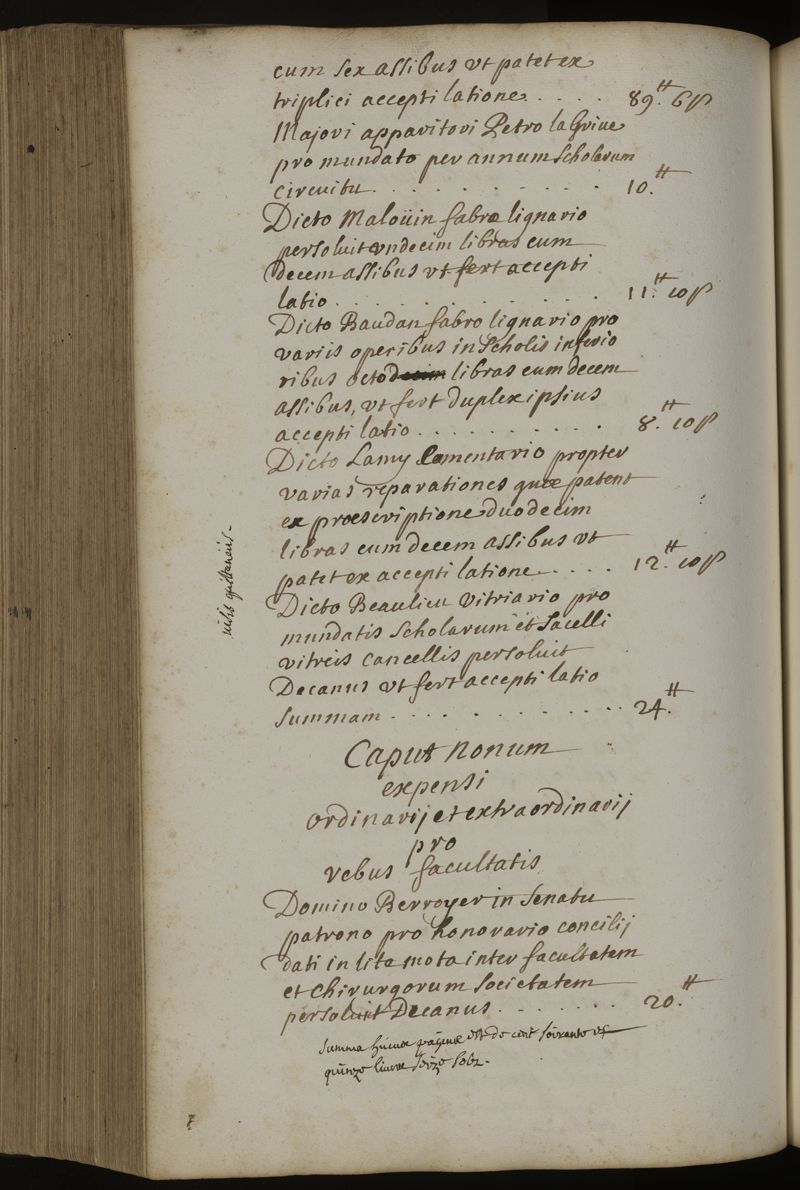 cum sex assibus ut patet ex
triplici accepti latione . . . . 89.ᵗᵗ 6 ß
Majori apparitori Petro la Griue
pro mundato per annum scholarum
circuitu . . . . . . . . . . 10.ᵗᵗ
Dicto Maloüin fabro lignario
persoluit undecim libras cum
decem assibus ut fert accepti
latio . . . . . . . . . . . 11.ᵗᵗ 10 ß
Dicto Baudan fabro lignario pro
variis operibus in Scholis inferio
ribus octodecim libras cum decem
assibus, ut fert duplex ipsius
accepti latio . . . . . . . . . 8.ᵗᵗ 10 ß
Dicto Lamy Cementario propter
varias reparationes quæ patent
ex præscriptione duodecim
libras cum decem assibus ut
patet ex accepti latione . . . . 12.ᵗᵗ 10 ß
Dicto Beaulieu vitriario pro
mundatis Scholarum et Sacelli
vitreis cancellis persoluit
Decanus ut fert accepti latio
summam . . . . . . . . . . 24.ᵗᵗ
Caput nonum
expensi
ordinarij et extraordinarij
pro
rebus facultatis
Domino Berroyer in Senatu
patrono pro honorario concilij
dati in lite mota inter facultatem
et chirurgorum societatem
persoluit Decanus . . . . . . . 20.ᵗᵗ
summa huius paginæ est de cent soixante et
quinze liures seize solz.